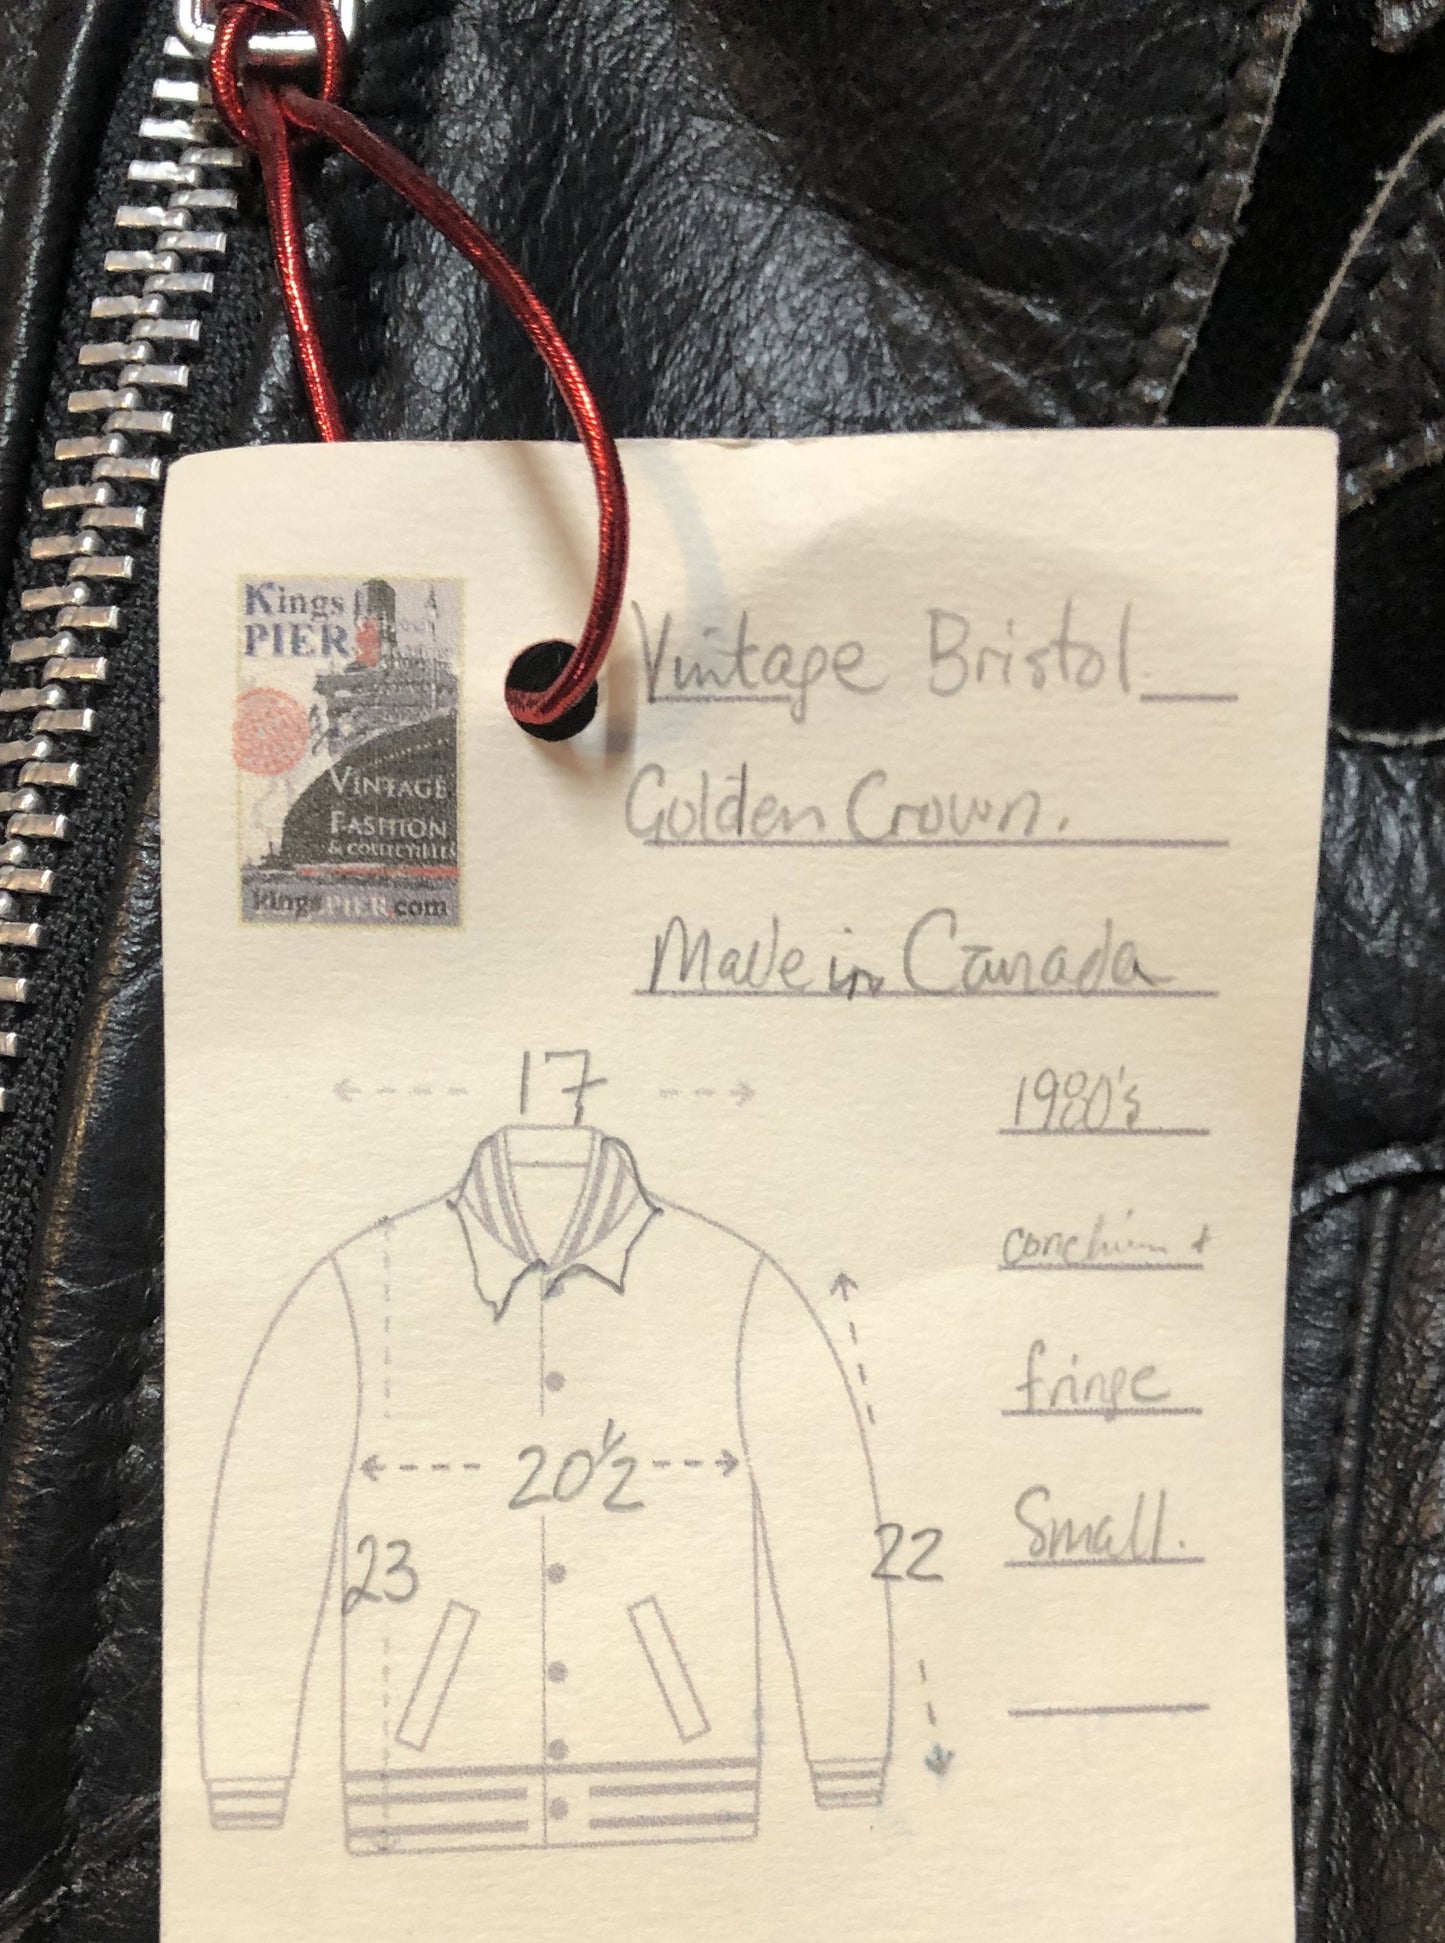 Kings
PIER
VINTAGE
FASHION
& COLLECTIBLES
kingsPIER.com
Vintage Bristol
Golden Crown.
Made in Canada
17
1980's
fringe
20 1/2
23
22
Small.